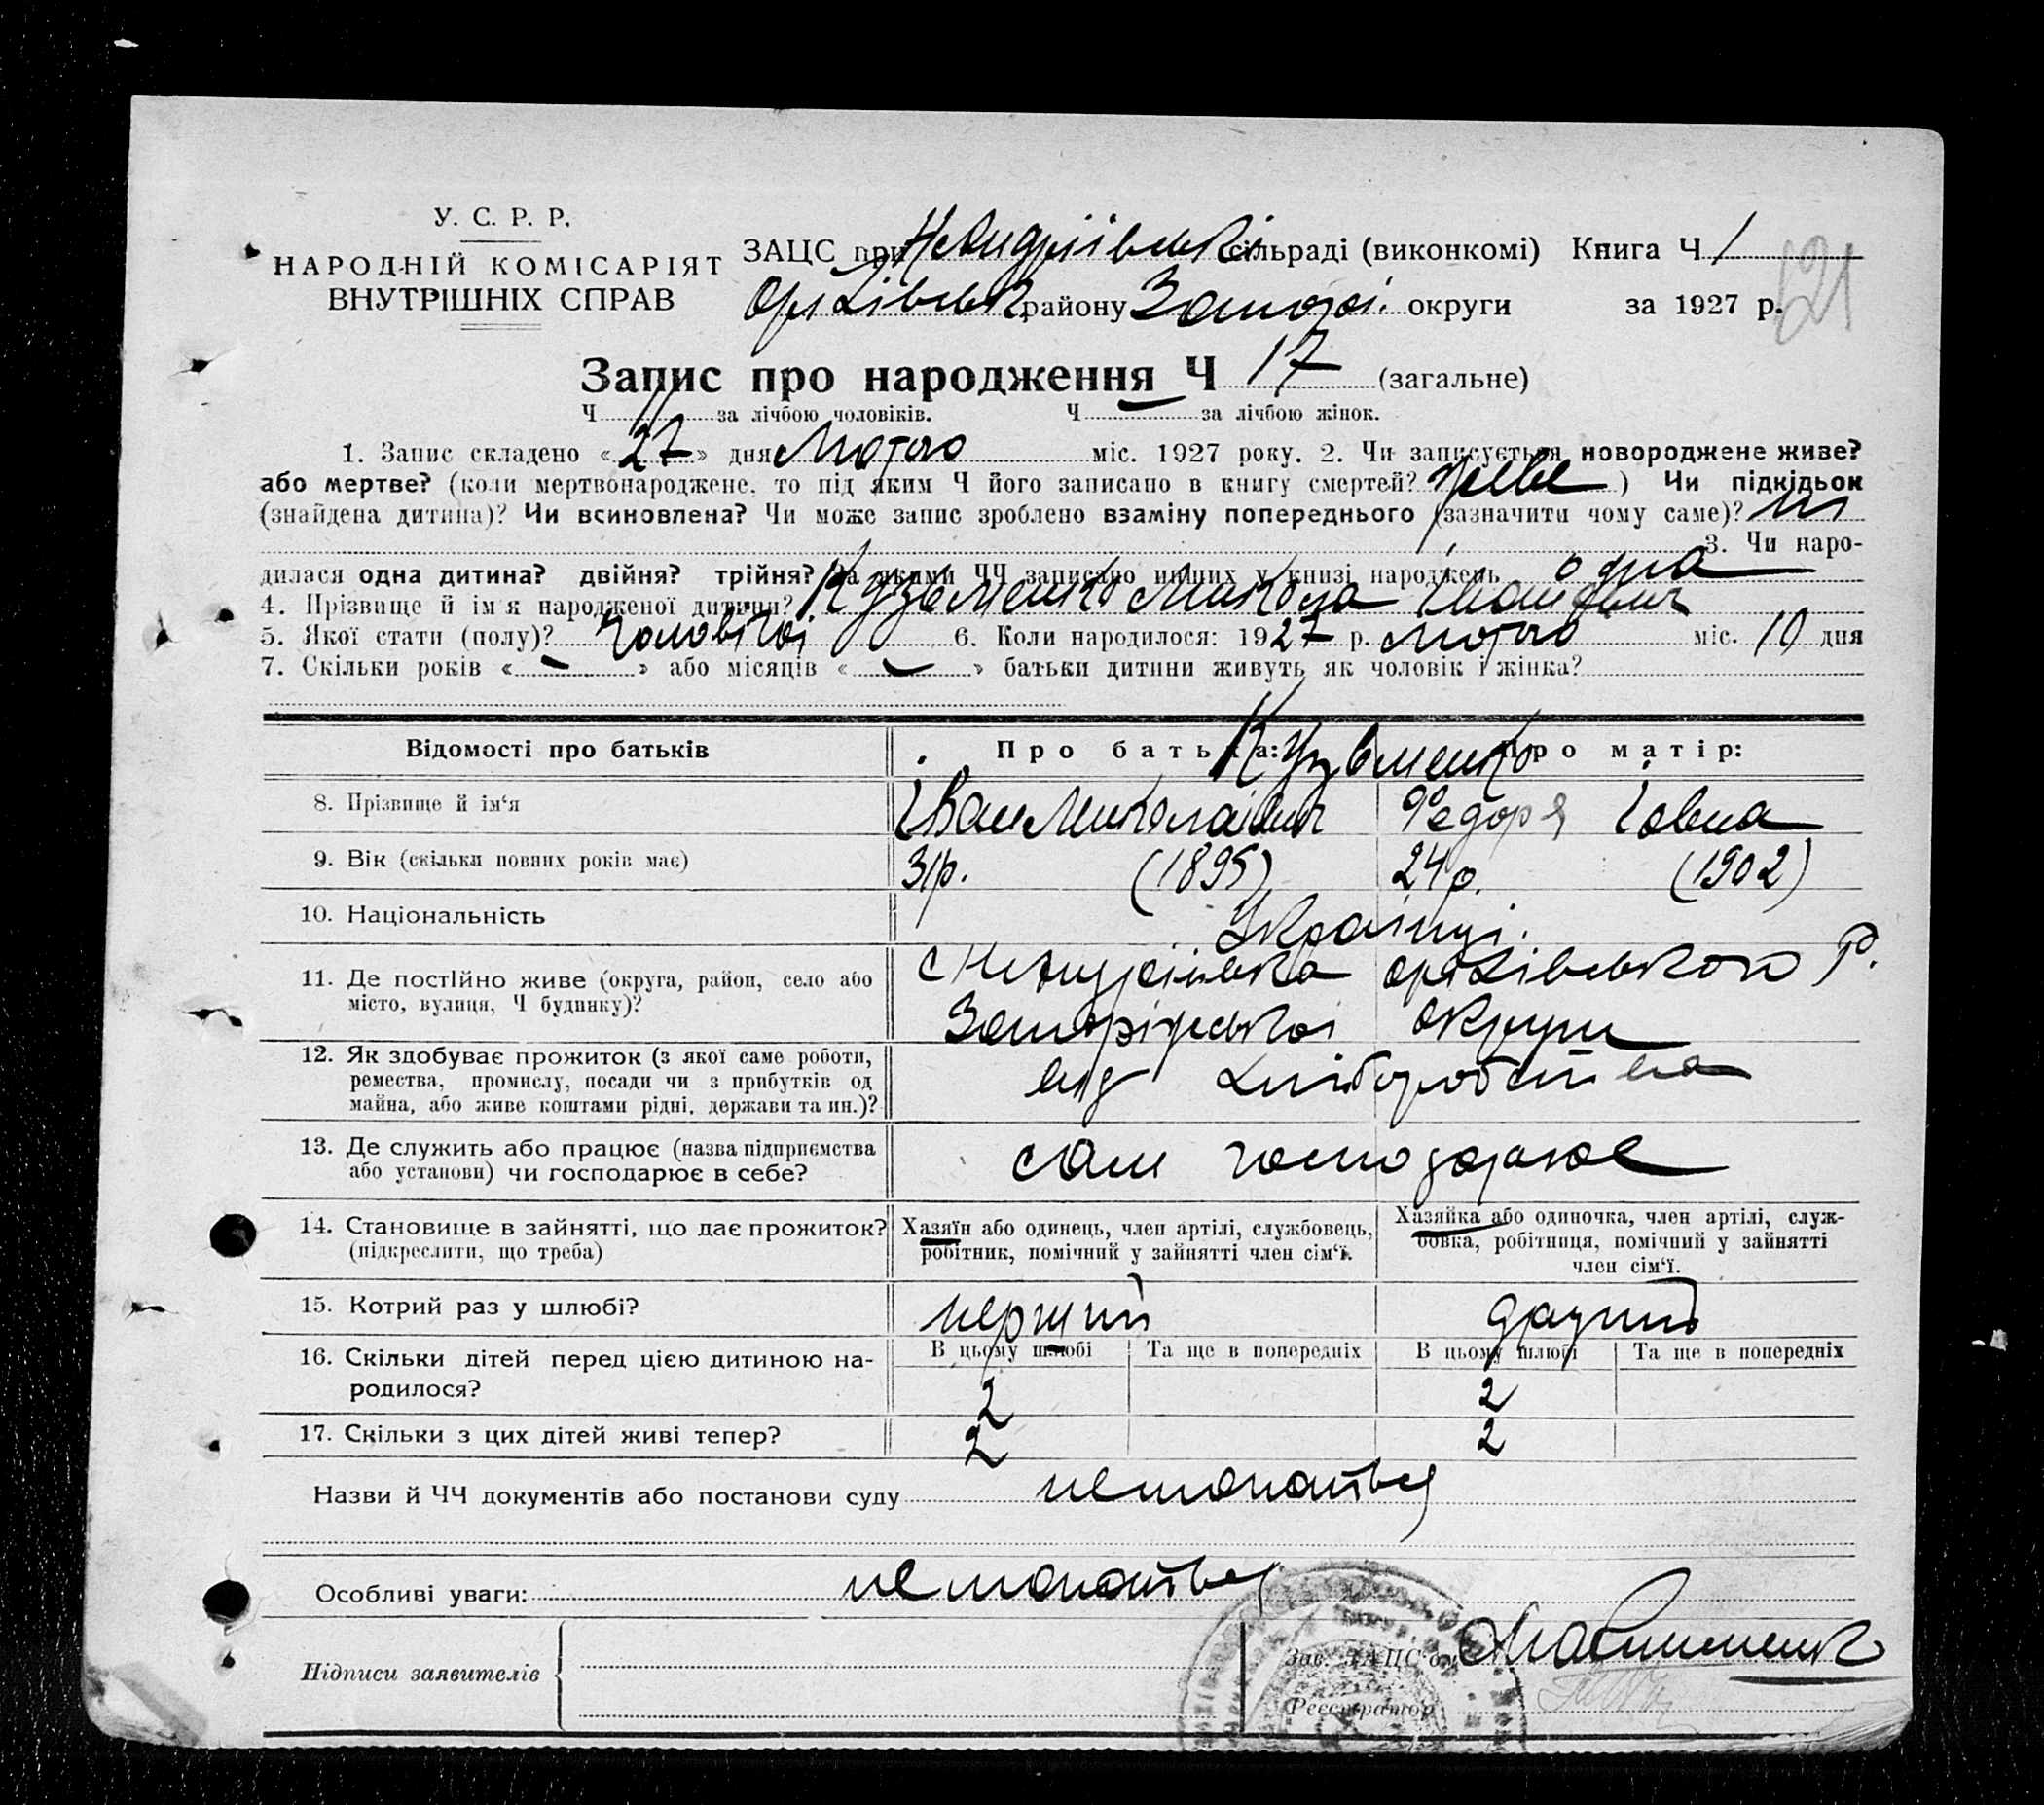 У. С. Р. Р.
НАРОДНІЙ КОМІСАРІЯТ
ВНУТРІШНІХ СПРАВ
ЗАЦС при сільраді (виконкомі) Книга Ч 1
Оріхівськ. району Запоріз. округи за 1927 р.
Запис про народження Ч 17 (загальне)
Ч 11 за лічбою чоловіків. Ч — за лічбою жінок.
1. Запис складено «27» дня Лютого міс. 1927 року. 2. Чи записується новороджене живе?
або мертве? (коли мертвонароджене, то під яким Ч його записано в книгу смертей? живе) Чи підкідьок
(знайдена дитина)? Чи всиновлена? Чи може запис зроблено взаміну попереднього (зазначити чому саме)? ні
3. Чи наро-
дилася одна дитина? двійня? трійня? За якими ЧЧ записано инших у книзі народжень одна
4. Прізвище й ім'я народженої дитини? Кузьменко Микола Іванович
5. Якої стати (полу)? Чоловічої 6. Коли народилося: 1927 р. лютого міс. 10 дня
7. Скільки років «—» або місяців «—» батьки дитини живуть як чоловік і жінка?
Відомості про батьків Про батька: Кузьменко Про матір:
8. Прізвище й ім'я Іван Миколаївич Федоря Іовна
9. Вік (скільки повних років має) 31р. (1895) 24р. (1902)
10. Національність Українці.
11. Де постійно живе (округа, район, село або
місто, вулиця, Ч будинку)?
с Оріхівського Р.
Запорізької округи
12. Як здобуває прожиток (з якої саме роботи,
ремества, промислу, посади чи з прибутків од
майна, або живе коштами рідні, держави та ин.)?
від хліборобства
13. Де служить або працює (назва підприємства
або установи) чи господарює в себе?
сам господарює
14. Становище в зайнятті, що дає прожиток?
(підкреслити, що треба)
Хазяїн або одинець, член артілі, службовець,
робітник, помічний у зайнятті член сім'ї.
Хазяйка або одиночка, член артілі, служ-
бовка, робітниця, помічний у зайнятті
член сім'ї.
15. Котрий раз у шлюбі? перший другий
16. Скільки дітей перед цією дитиною на-
родилося?
В цьому шлюбі Та ще в попередніх В цьому шлюбі Та ще в попередніх
2 2
17. Скільки з цих дітей живі тепер? 2 2
Назви й ЧЧ документів або постанови суду
Особливі уваги:
Підписи заявителів
Зав. ЗАЦС'ом
Реєстратор